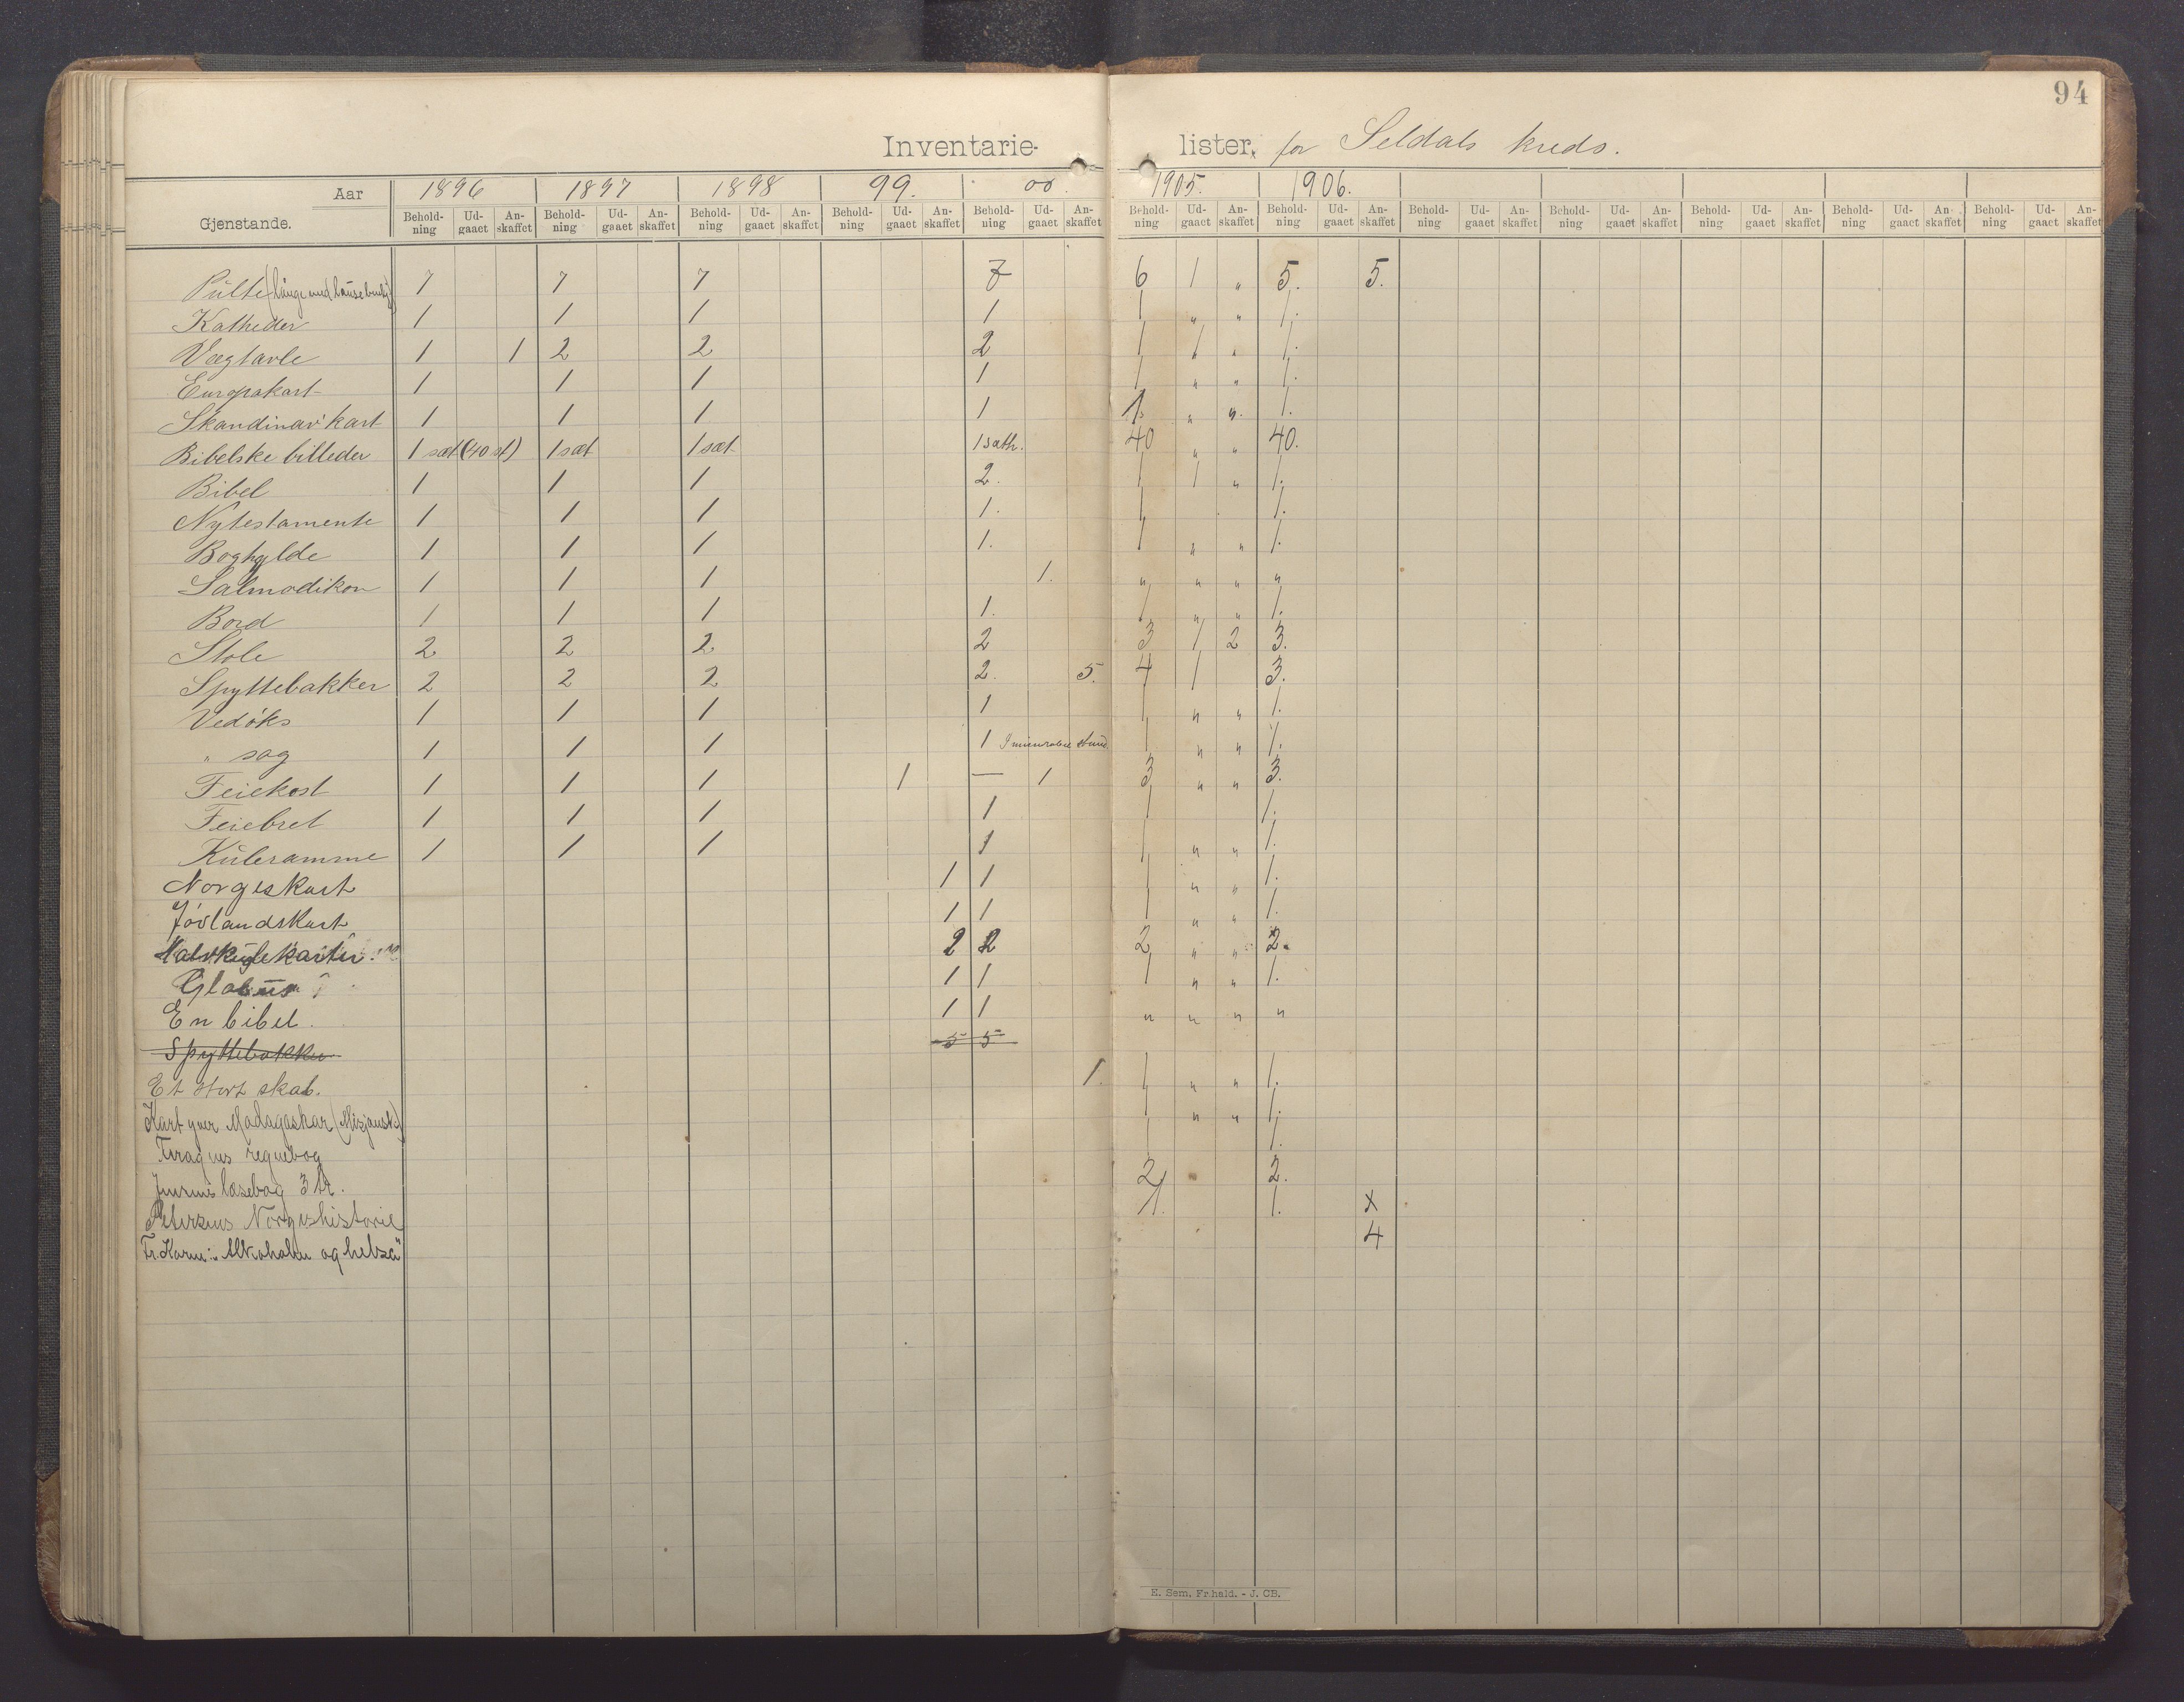 94
Inventarie- lister, for Seldals kreds.
Aar 1896 1897 1898 99. 00. 1905. 1906.
Gjenstande. Behold-ning Ud-gaaet An-skaffet Behold-ning Ud-gaaet An-skaffet Behold-ning Ud-gaaet An-skaffet Behold-ning Ud-gaaet An-skaffet Behold-ning Ud-gaaet An-skaffet Behold-ning Ud-gaaet An-skaffet Behold-ning Ud-gaaet An-skaffet Behold-ning Ud-gaaet An-skaffet Behold-ning Ud-gaaet An-skaffet Behold-ning Ud-gaaet An-skaffet Behold-ning Ud-gaaet An-skaffet Behold-ning Ud-gaaet An-skaffet
Pulte 7 7 7 7 6 1 " 5. 5.
Katheder 1 1 1 1 1 " " 1.
Vægtavle 1 1 2 2 2 1 1 " 1.
Europakart 1 1 1 1 1 " " 1.
Skandinav' kart 1 1 1 1 1. " ". 1.
Bibelske billeder 1 sæt (40 st) 1 sæt 1 sæt. 1 sæth. 40 " " 40.
Bibel 1 1 1 2. 1 1 " 1.
Nytestamente 1 1 1 1. 1 1.
Boghylde 1 1 1 1. 1 " " 1.
Salmodikon 1 1 1 1. " " " "
Bord 1 1 1 1. 1 " " 1.
Stole 2 2 2 2 3 1 2 3.
Spyttebakker 2 2 2 2. 5. 4 1 3.
Vedøks 1 1 1 1 1 " " 1.
" sag 1 1 1 1 1 " " 1.
Feiekost 1 1 1 1 — 1 3 " " 3.
Feiebret 1 1 1 1 1 1.
Kuleramme 1 1 1 1 1 " " 1.
Norgeskart 1 1 1 " " 1.
Jødlandskart 1 1 1 " " 1.
2 2 2 " " 2.
Globus 1 1 1 " " 1.
En bibel. 1 1 " " " "
Spyttebakker 5 5
Et stort skab. 1. 1 " " 1.
Kart yver Madagaskar (Misjonsk.) 1 " " 1.
regnebog 1 1.
læsebog 3 2 2.
Norgeshistorie 1. 1. x
Alkoholen og helsa" 4
E. Sem, Fr.hald. - J. CB.